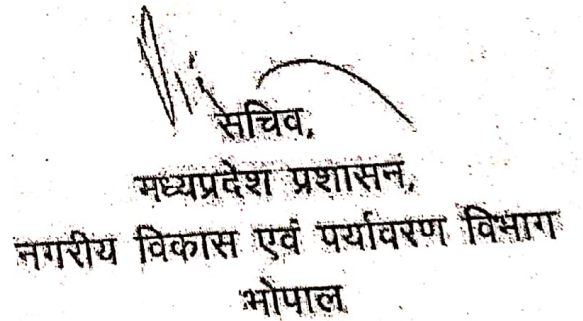 सचिव,
मध्यप्रदेश प्रशासन,
नगरीय विकास एवं पर्यावरण विभाग
भोपाल